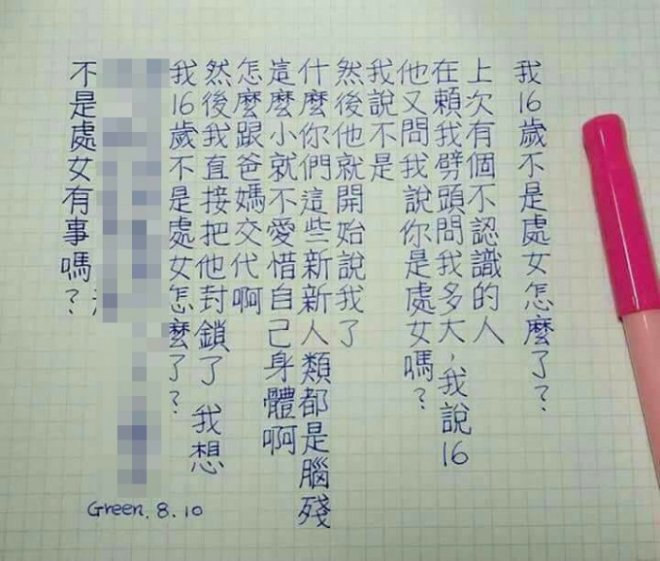 我16歲不是處女怎麼了？
上次有個不認識的人
在賴我劈頭問我多大，我說16
他又問我說你是處女嗎？
我說不是
然後他就開始說我了
什麼你們這些新新人類都是腦殘
這麼小就不愛惜自己身體啊
怎麼跟爸媽交代啊
然後我直接把他封鎖了 我想
我16歲不是處女怎麼了？
不是處女有事嗎？
Green. 8.10